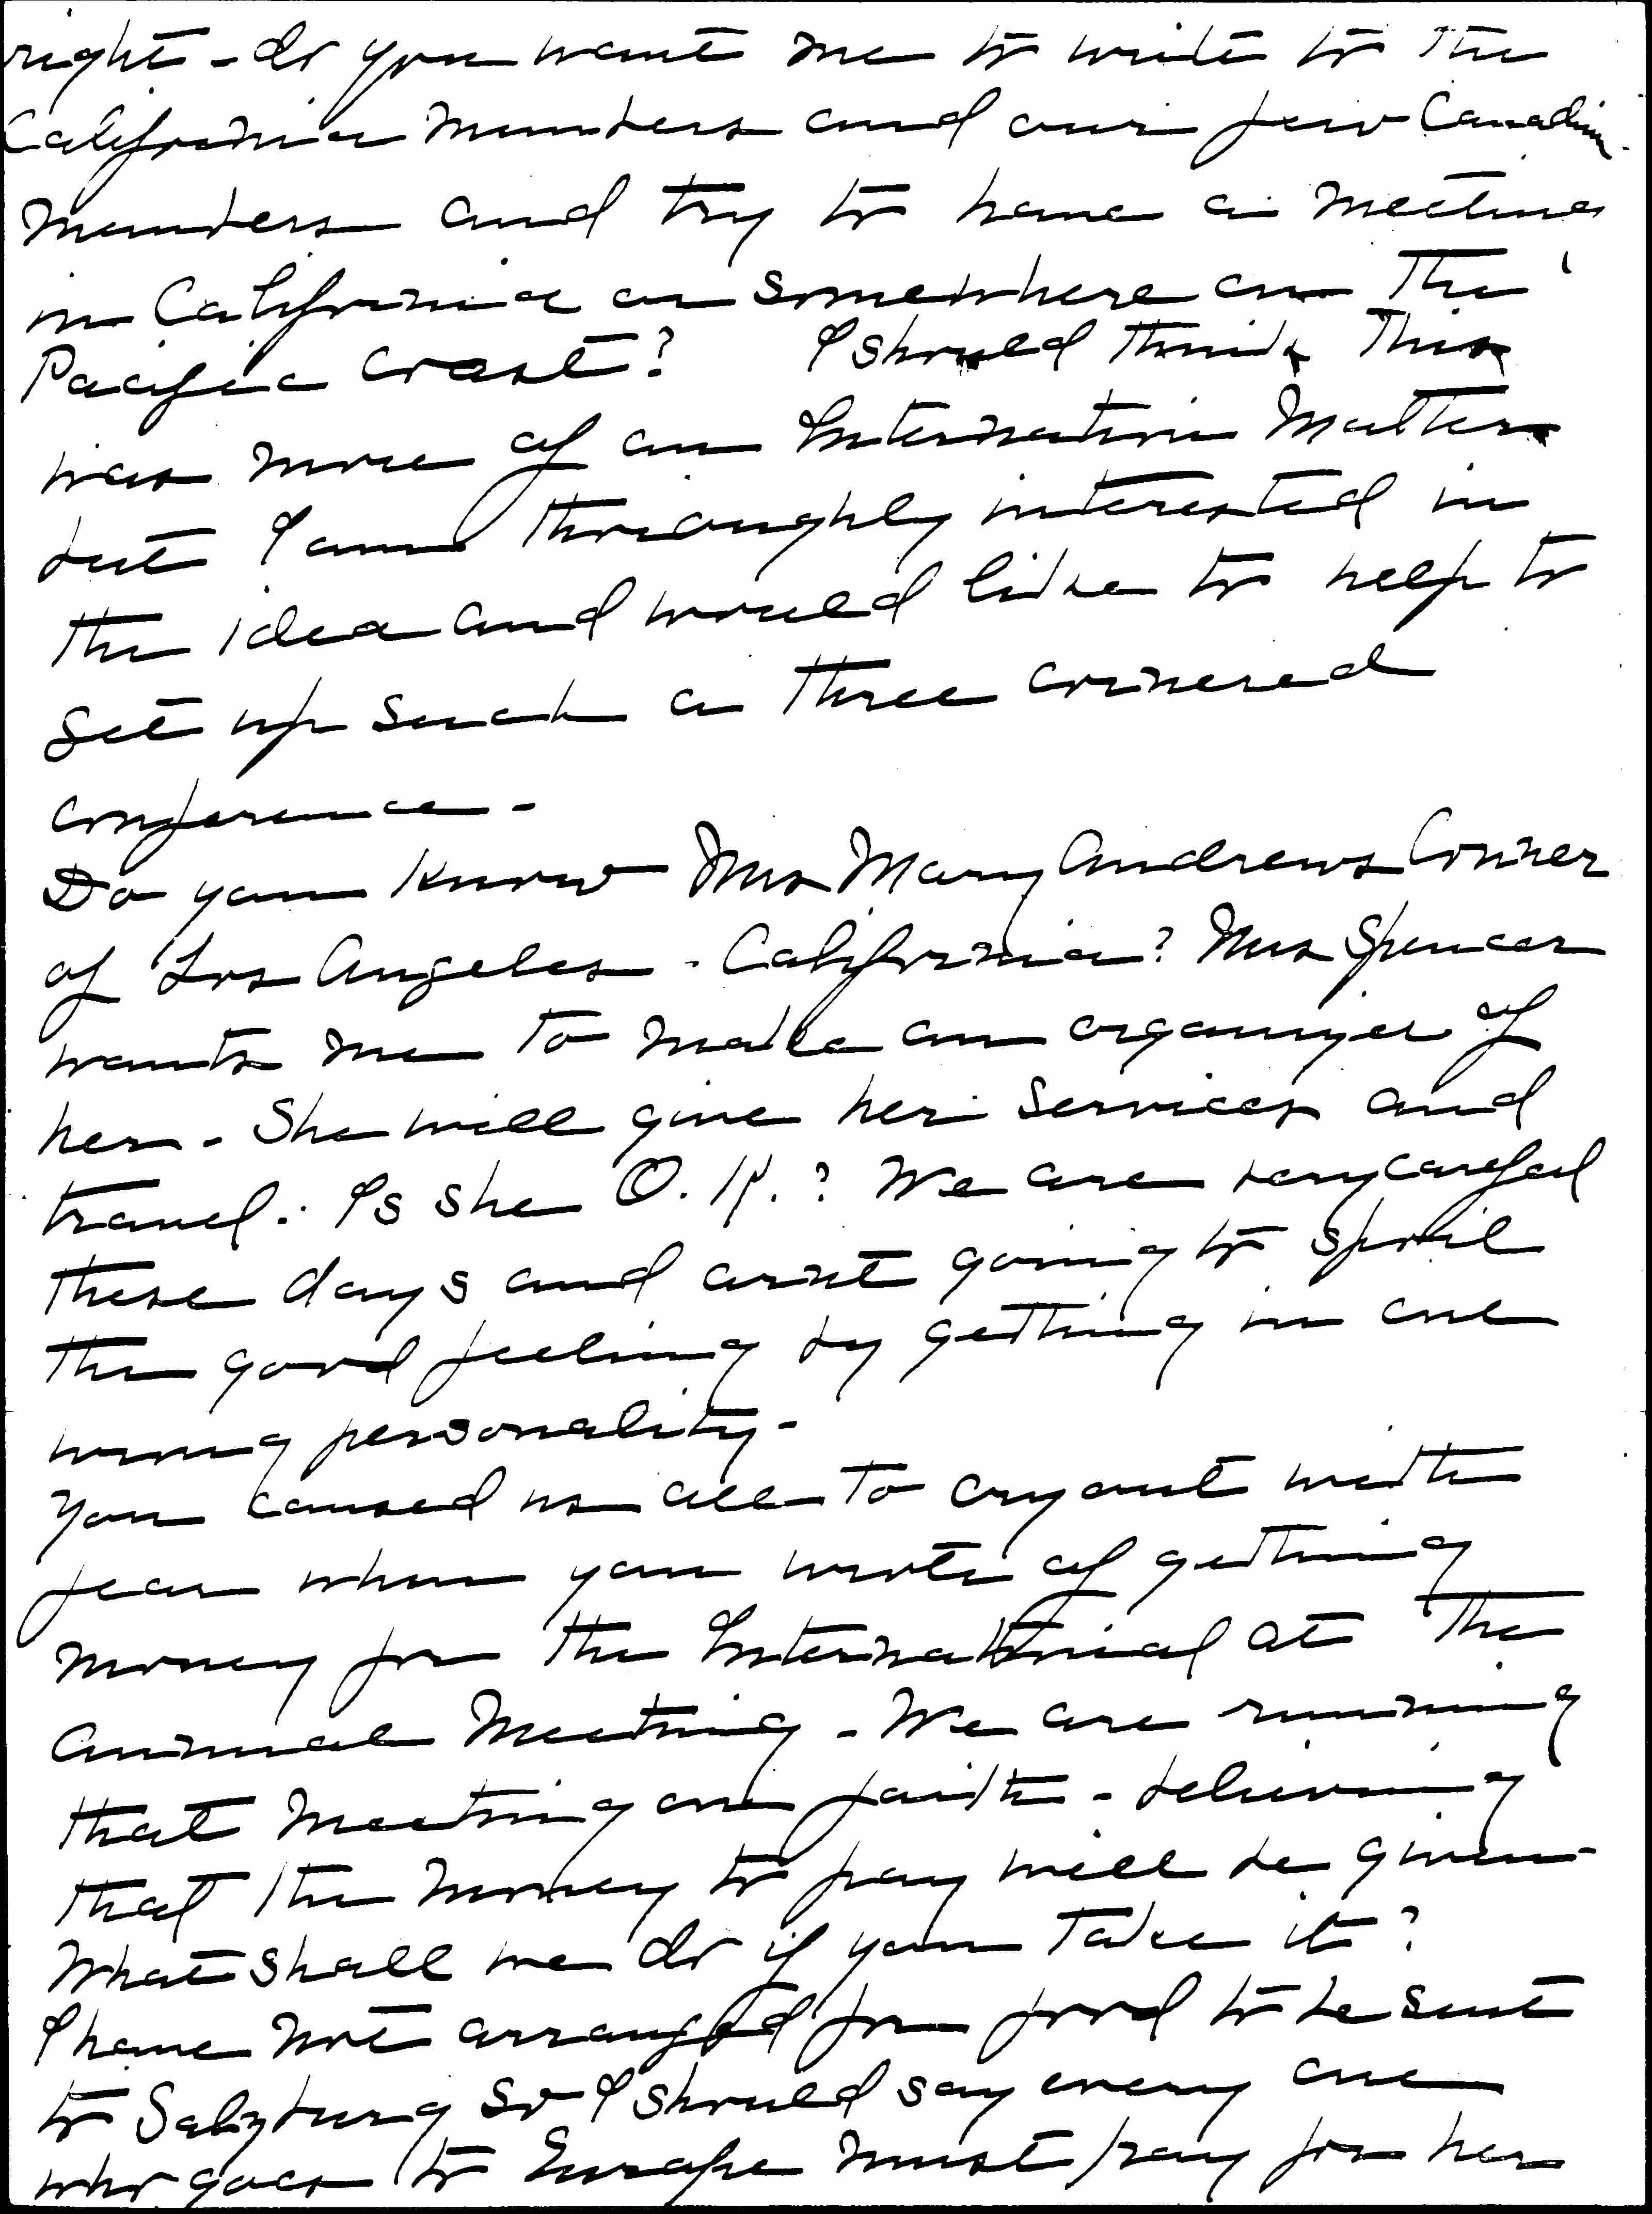 right - do you want me to write to the
California members and our few Canadian
members and try to have a meeting
in California or somewhere on the
Pacific Coast? I should think this
was more of an Internation Matter
but I am thoroughly interested in
the idea and would like to help to
set up such a three cornered
conference -
Do you know Mrs Mary Andrews Conner
of Los Angeles - California? Mrs Spencer
wants me to make an organizer of
her - She will give her services and
travel. Is she O.K.? We are very careful
these days and arnt going to spoil
the good feeling by getting in one
wrong personality -
You caused us all to cry out with
fear when you wrote of getting
money for the International at the
Annual Meeting - We are running
that Meeting on faith - believing
that the money to pay will be given -
What shall we do if you take it?
I have not arranged for food to be sent
to Salzburg so I should say every one
who goes to Europe must pay for her